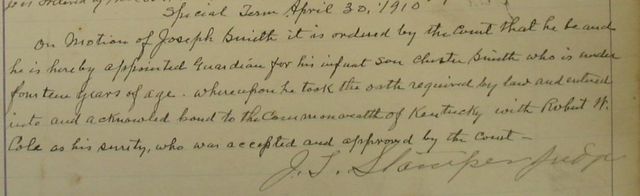 Special Term April 30, 1910
On Motion of Joseph Smith it is ordered by the Court that he be and
he is hereby appointed Guardian for his infant son Chester Smith who is under
fourteen years of age. whereupon he took the oath required by law and entered
into and acknowled bond to the Commonwealth of Kentucky with Robert W.
Cole as his surety, who was accepted and approved by the Court —
J. T. Stamper Judge